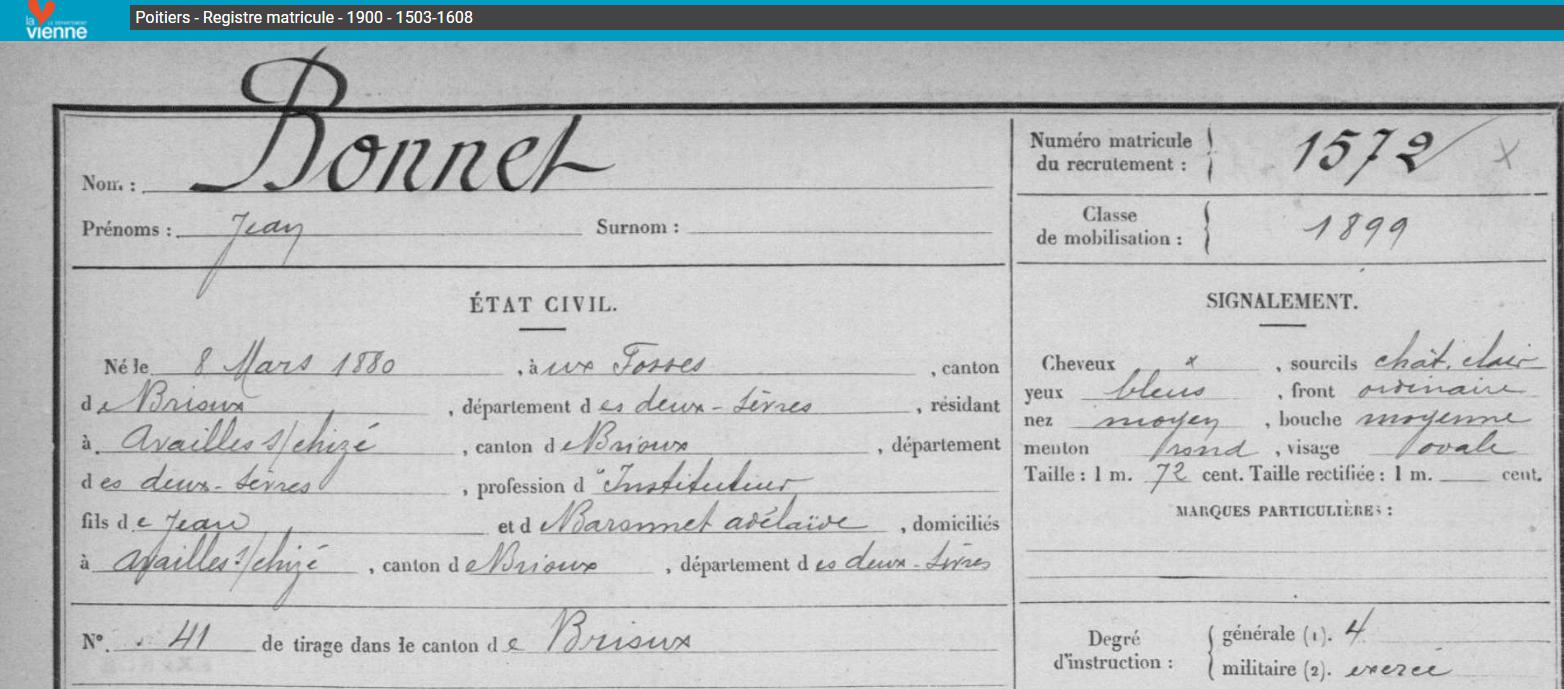 la
LE DÉPARTEMENT
vienne
Poitiers - Registre matricule - 1900 - 1503-1608
Nom : Bonnet
Prénoms : Jean Surnom :
ÉTAT CIVIL.
Né le 8 Mars 1880, à ux Fosses, canton
de Brioux, département des deux-Sèvres, résidant
à Availles s/chizé, canton de Brioux, département
des deux-Sèvres, profession d'Instituteur
fils de Jean et de Baronnet adélaïde, domiciliés
à availles s/chizé, canton de Brioux, département des deux-Sèvres
N° 41 de tirage dans le canton de Brioux
Numéro matricule
du recrutement : 1572 x
Classe
de mobilisation : 1899
SIGNALEMENT.
Cheveux x, sourcils chât. clair
yeux bleus, front ordinaire
nez moyen, bouche moyenne
menton rond, visage ovale
Taille : 1 m. 72 cent. Taille rectifiée : 1 m. cent.
MARQUES PARTICULIÈRES :
Degré
d'instruction :
générale (1). 4
militaire (2). exercé